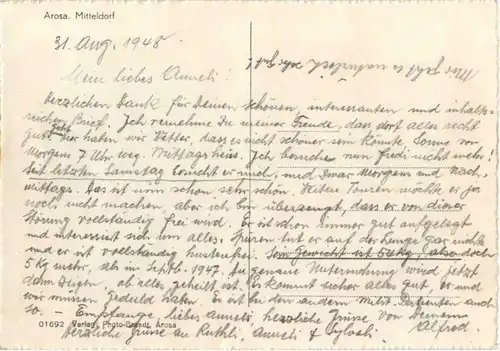 Arosa. Mitteldorf
31. Aug. 1948
Mein liebes Anneli!
Herzlichen Dank für Deinen schönen, interessanten und inhalts-
reichen Brief. Ich vernehme zu meiner Freude, dass dort alles recht
gut. Hier haben wir Wetter, dass es nicht schöner sein könnte, Sonne von
Morgens 7 Uhr weg. Mittags heiss. Ich brauche nun Fredi nicht mehr!
Seit letzten Samstag er auch, und zwar Morgens und Nach-
mittags. Das ist nun schon sehr schön. Weitere Touren möchte er ja
noch nicht machen, aber ich bin überzeugt, dass er von dieser
Störung vollständig frei wird. Er ist schon immer gut aufgelegt
und interessiert sich um alles. Spüren tut er auf der Lunge gar nichts
und er ist vollständig hustenfrei. Sein Gewicht ist kg, also doch
5 kg mehr, als im Septb. 1947. genaue Untersuchung wird jetzt
dann zeigen, ob alles geheilt ist. Es kommt sicher alles gut, er und
wir müssen Geduld haben. Es ist bei den andern Milit. Patienten auch
so. — Empfange, liebes Anneli herzliche Grüsse von Deinem
Alfred.
Herzliche Grüsse an Ruthli, Anneli &
01692 Verlag Photo-Brandt, Arosa